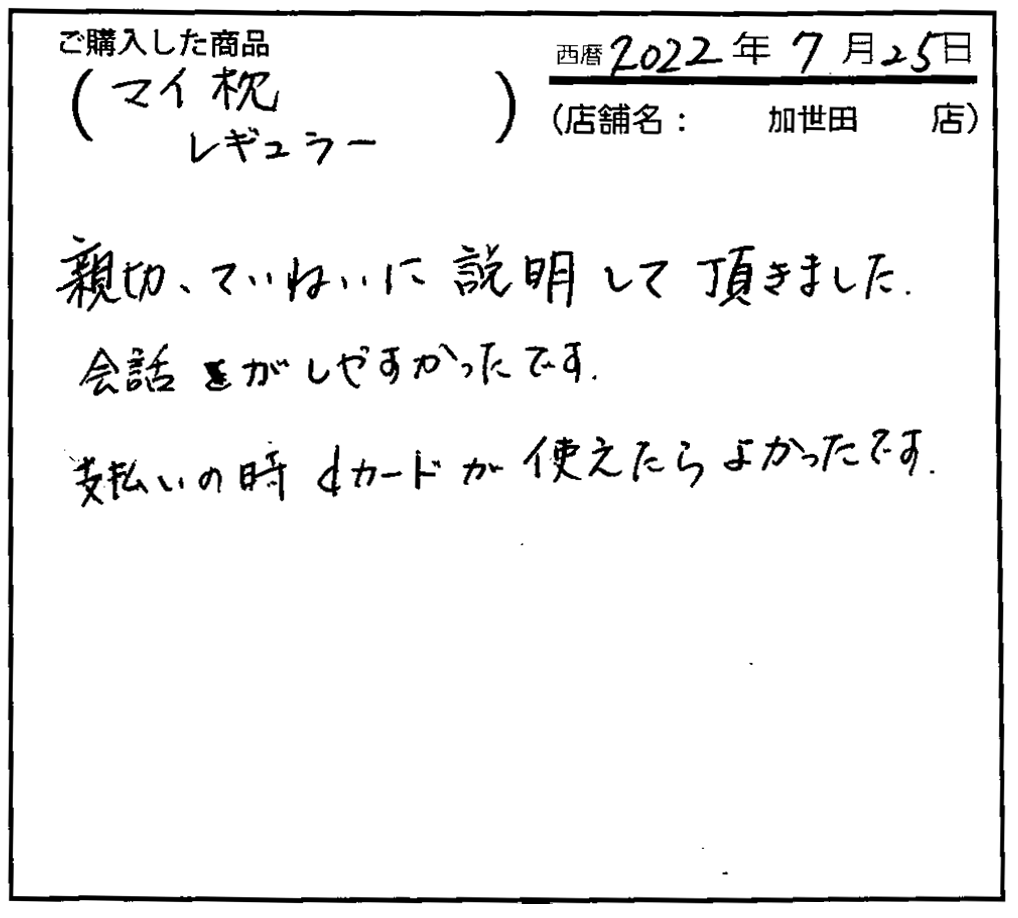 ご購入した商品
西暦 2022 年 7 月 25 日
(マイ枕
レギュラー)
(店舗名: 加世田 店)
親切、ていねいに説明して頂きました.
会話がしやすかったです.
支払いの時dカードが使えたらよかったです.